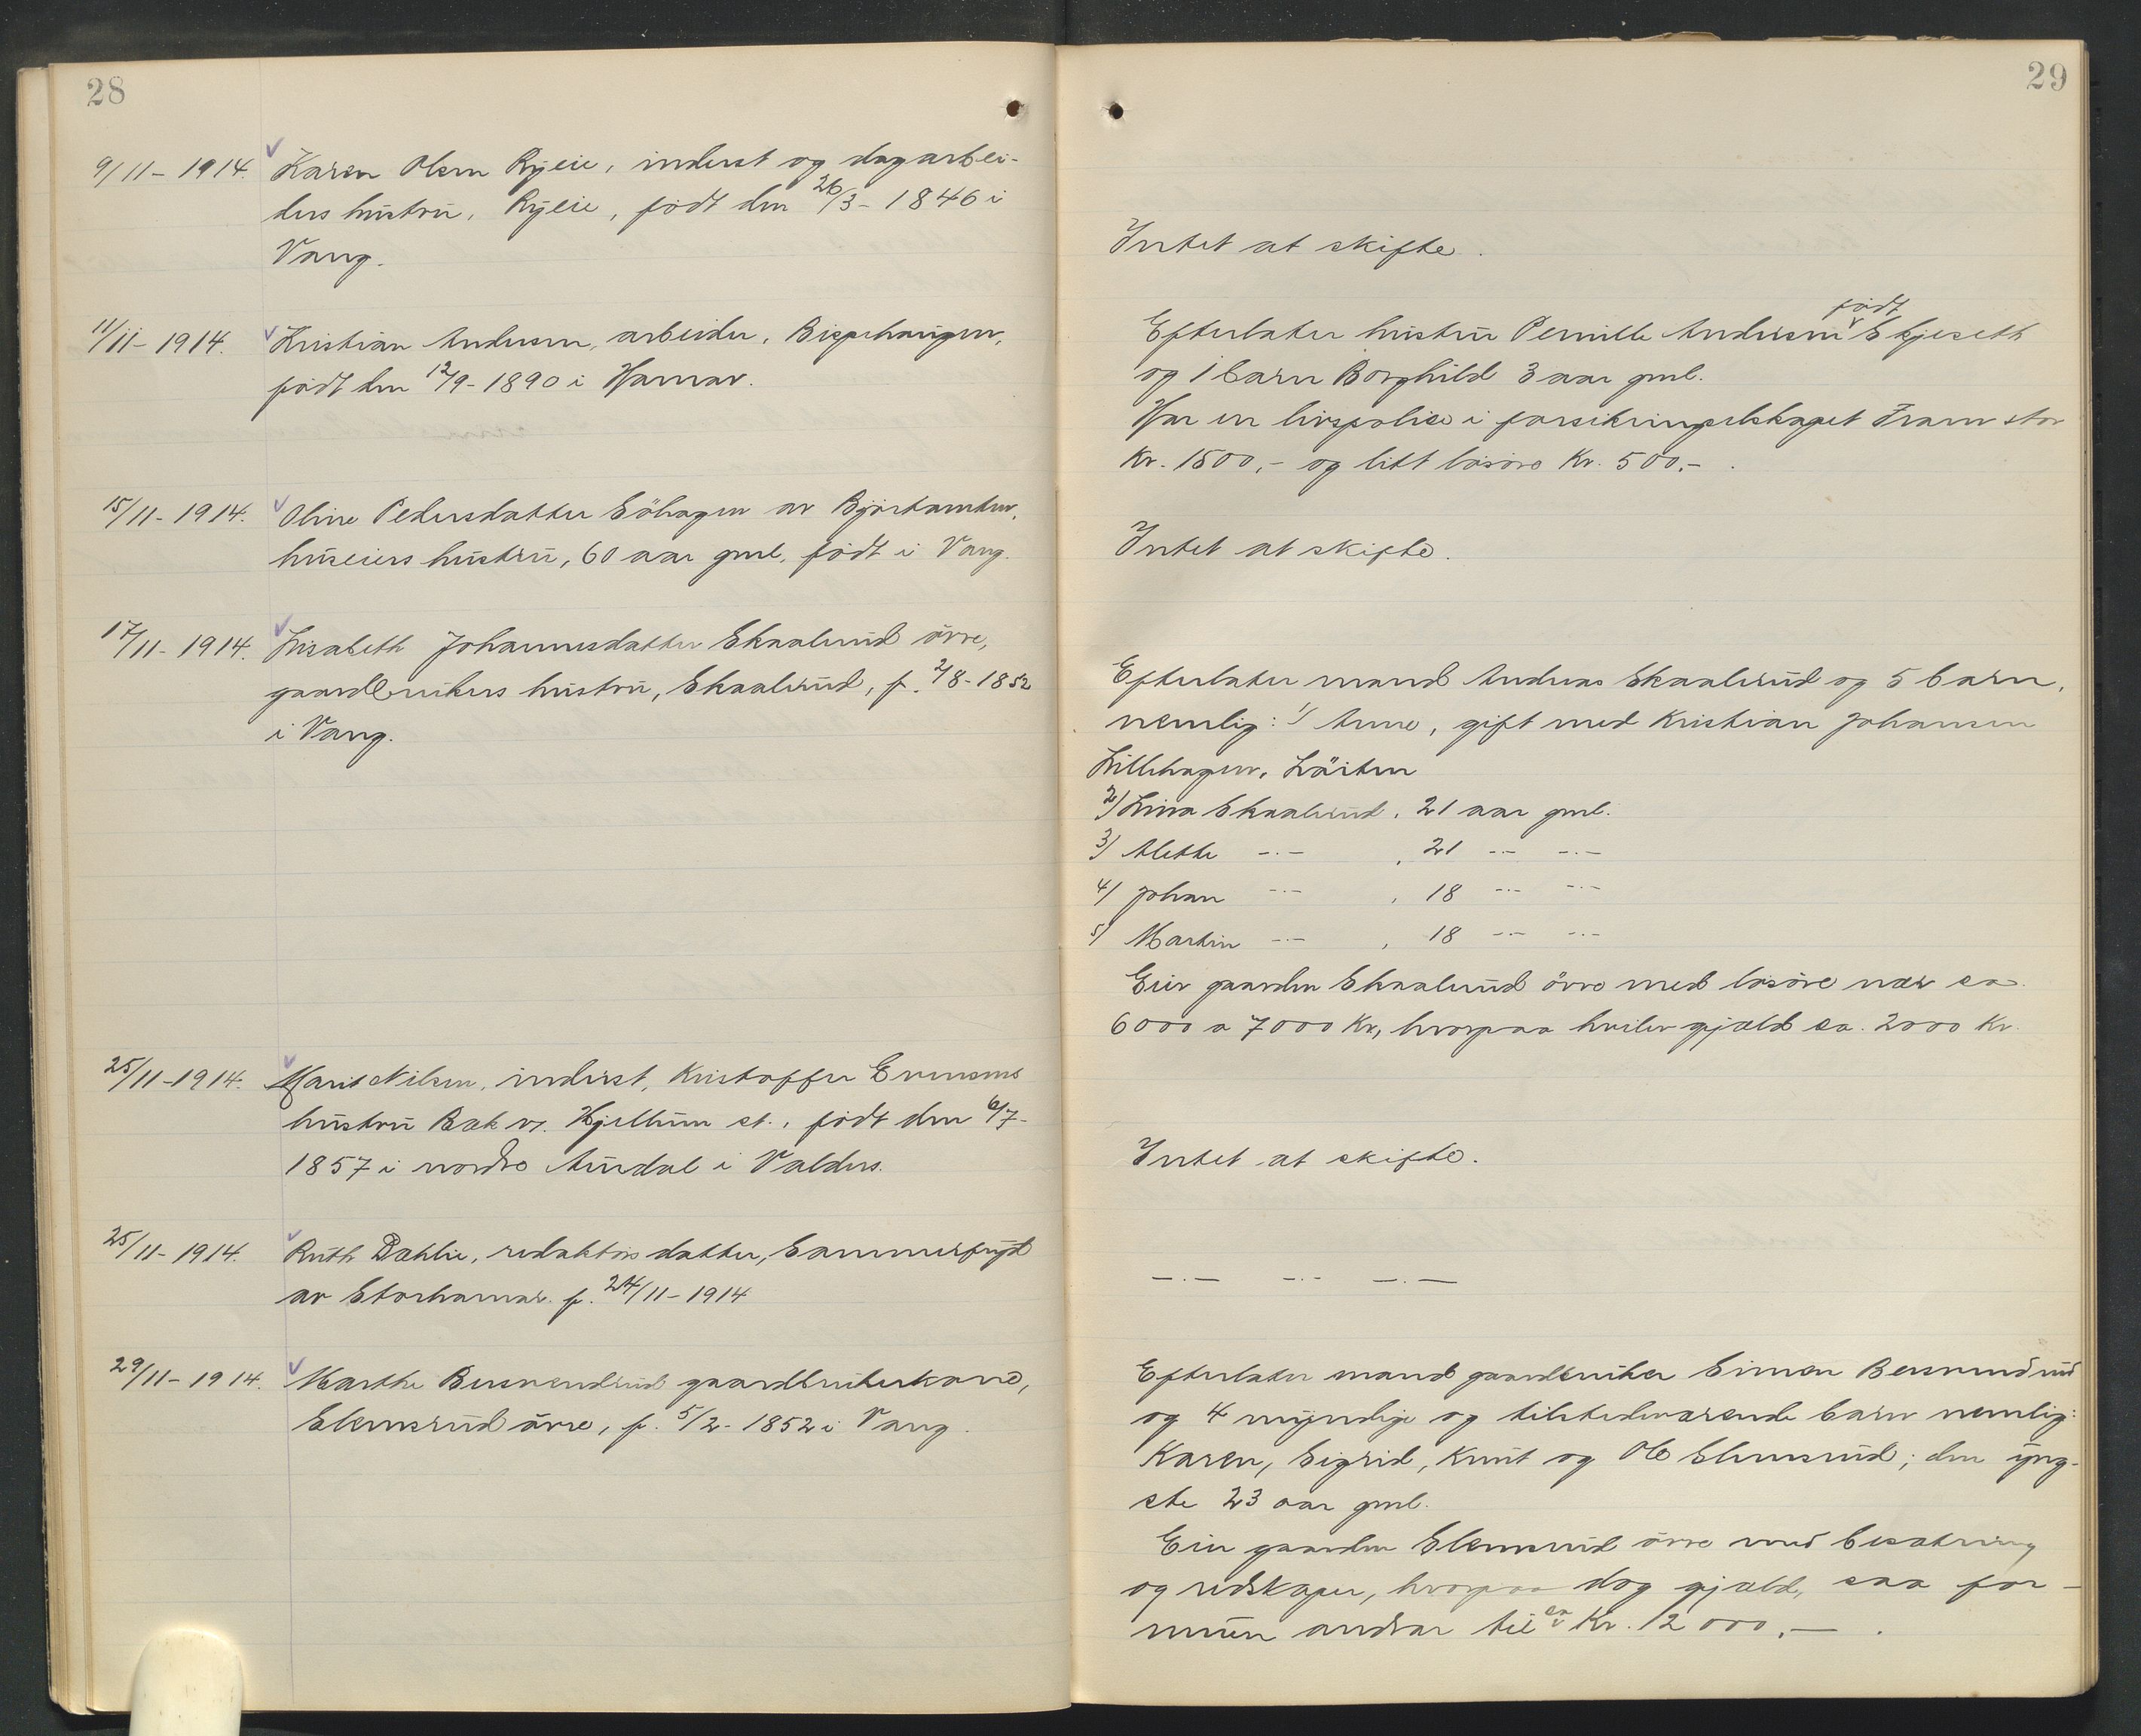 28
9/11-1914. Karen Olsen Ryeie, inderst og dagarbei-
ders hustru, Ryeie, født den 26/3-1846 i
Vang.
11/11-1914. Kristian Andersen, arbeider, Bispehaugen,
født den 12/9-1890 i Hamar.
15/11-1914. Oline Pedersdatter Söhagen av
huseiers hustru, 60 aar gml, født i Vang.
17/11-1914. Lisabeth Johannesdatter Skaalerud övre,
gaardbrukers hustru, Skaalerud, f. 2/8-1852
i Vang.
25/11-1914. Marit Nilsen, inderst, Kristoffer Evensens
hustru Bæk v. Hjellum st., født den 6/7-
1857 i nordre Aurdal i Valders.
25/11-1914. Ruth Dæhlie, redaktørs datter,
av Storhamar. f. 24/11-1914
29/11-1914. Marthe Bersvendrud gaardbrukerkone,
Slemsrud övre, f. 5/2-1852 i Vang.
29
Intet at skifte.
Efterlater hustru Pernille Andersen født Skjeseth
og 1 barn Borghild 3 aar gml.
Har en livspolice i forsikringselskapet Fram stor
Kr. 1500,- og litt løsøre Kr. 500,-.
Intet at skifte.
Efterlater mand Andreas Skaalerud og 5 barn,
nemlig: 1/ Anne, gift med Kristian Johansen
Lillehagen, Löiten
2/ Lina Skaalerud, 21 aar gml.
3/ Alette -.- , 21 -.- -.-
4/ Johan -.- , 18 -.- -.-
5/ Martin -.- , 18 -.- -.-
Eier gaarden Skaalerud övre med løsøre værd ca.
6000 a 7000 Kr, hvorpaa hviler gjæld ca. 2000 Kr.
Intet at skifte.
-.- -.- -.-
Efterlater mand gaardbruker Simen Bersvendrud
og 4 myndige og tilstedeværende barn nemlig:
Karen, Sigrid, Knut og Ole Slemsrud; den yng-
ste 23 aar gml.
Eier gaarden Slemsrud övre med besætning
og redskaper, hvorpaa dog gjæld, saa for-
muen andrar til ca Kr. 12000,-.